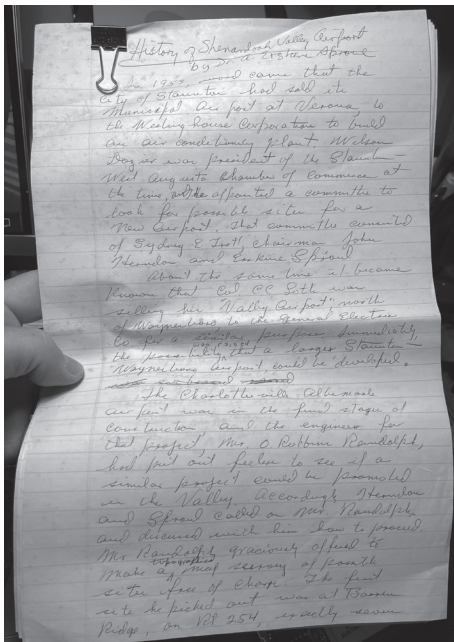 History of Shenandoah Valley Airport
by Dr. A. Erskine Sproul
In 19 word came that the
City of Staunton had sold its
Municipal Air port at Verona, to
the Westinghouse Corporation to build
an air conditioning plant. Nelson
was president of the Staunton
West Augusta Chamber of Commerce at
the time, and he appointed a committe to
look for possible sites for a
New Airport. That committe consisted
of Sydney E , Chairman John
Herndon and Erskine Sproul
About the same time it became
known that Col CC was
selling his "Vally Airport" north
of Waynesboro to the General Electric
Co for a purpose immediately
the possibility was raised that a larger Staunton
Waynesboro Airport could be developed.
The Charlottesville Albemarle
air port was in the final stages of
construction and the engineer for
that project, Mr. O. Robbins Randolph,
had put out feelers to see if a
similar project could be promoted
in the Valley Accordingly Herndon
and Sproul called on Mr. Randolph
and discussed with him how to proceed
Mr Randolph graciously offered to
make a topographical map survey of possible
sites free of charge. The first
site he picked out was at Barren
Ridge, on Rt 254, exactly seven